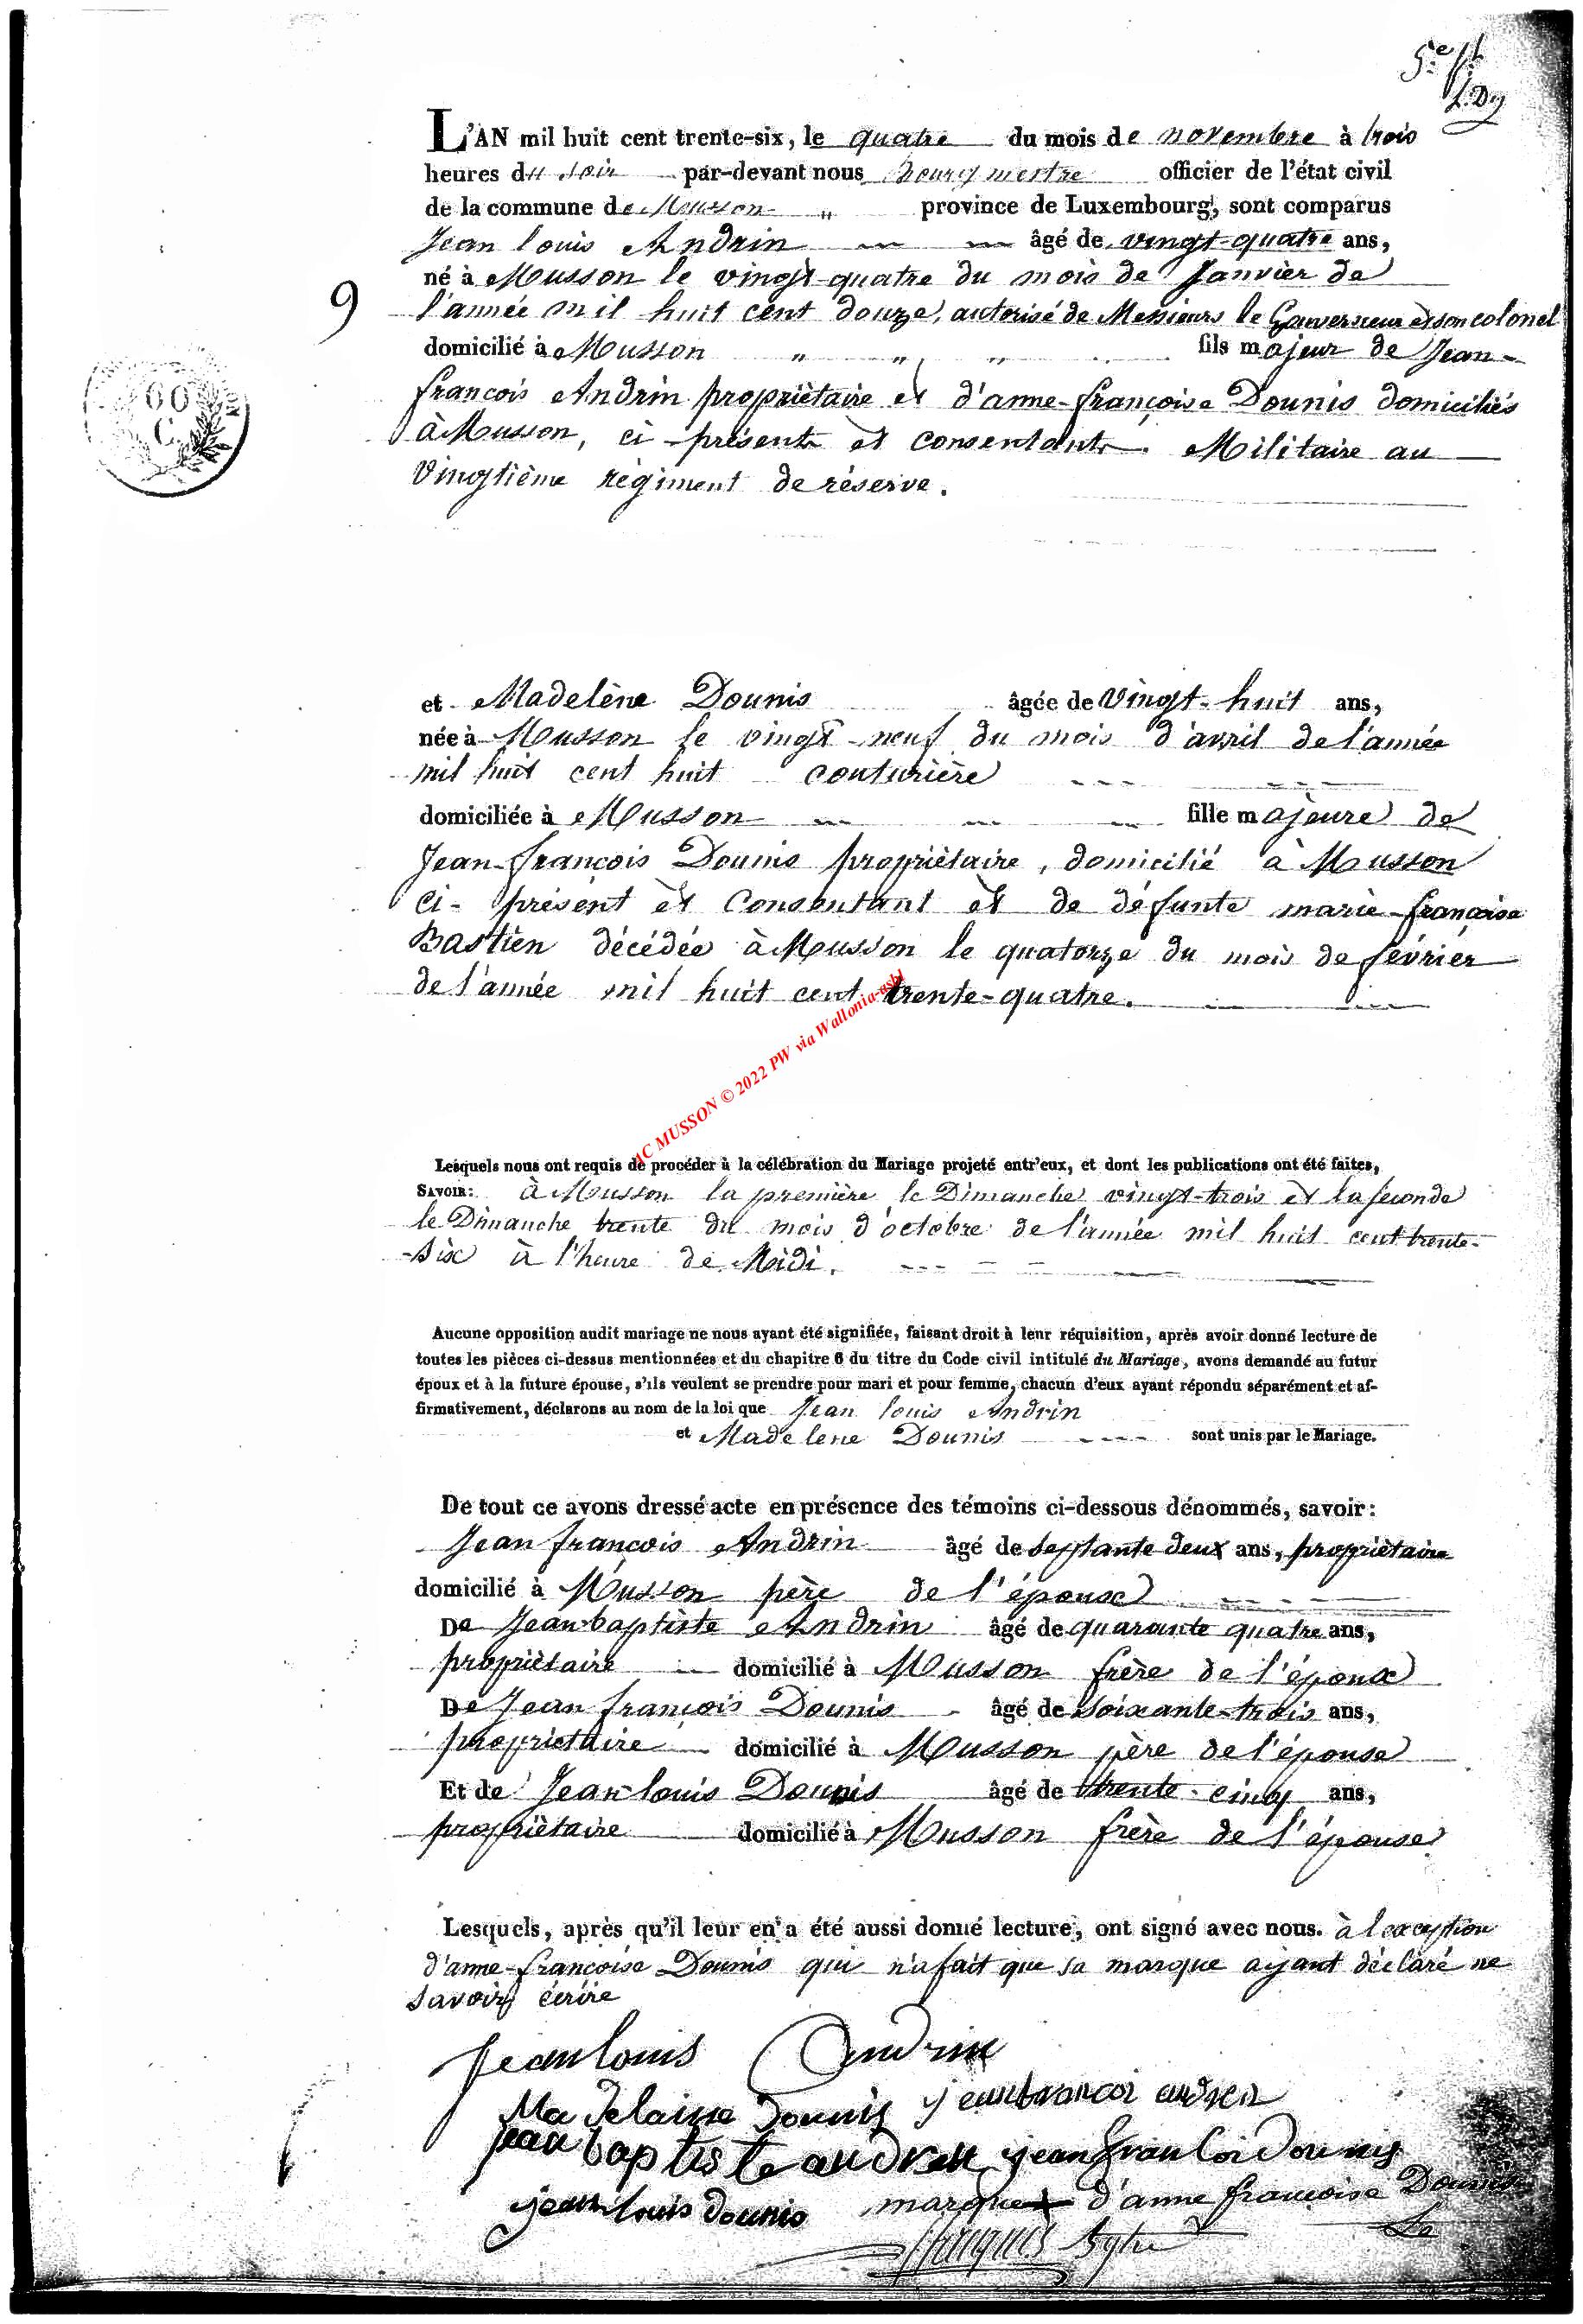 L'AN mil huit cent trente-six, le quatre du mois de novembre à trois
heures du soir par-devant nous bourgmestre officier de l'état civil
de la commune de Musson " province de Luxembourg, sont comparus
Jean louis Andrin âgé de vingt-quatre ans,
né à Musson le vingt-quatre du mois de Janvier de
9
l'année mil huit cent douze, autorisé de Messieurs le Gouverneur et son colonel
domicilié à Musson " " " fils majeur de Jean-
françois Andrin propriètaire et d'anne-françoise Dounis domiciliés
60
C
à Musson, ci-présents et consentants. Militaire au
Vingtième régiment de réserve.
et Madelène Dounis âgée de Vingt-huit ans,
née à Musson le vingt-neuf du mois d'avril de l'année
mil huit cent huit couturière
domiciliée à Musson fille majeure de
Jean-françois Dounis propriètaire, domicilié à Musson
ci-présent èt Consentant èt de défunte marie-françoise
Bastien décédée à Musson le quatorze du mois de février
de l'année mil huit cent trente-quatre.
AC MUSSON © 2022 PW via Wallonia-asbl
Lesquels nous ont requis de procéder à la célébration du Mariage projeté entr'eux, et dont les publications ont été faites,
SAVOIR: à Musson la première le Dimanche vingt-trois èt la seconde
le Dimanche trente du mois d'octobre de l'année mil huit cent trente-
-six à l'heure de Midi.
Aucune opposition audit mariage ne nous ayant été signifiée, faisant droit à leur réquisition, après avoir donné lecture de
toutes les pièces ci-dessus mentionnées et du chapitre 6 du titre du Code civil intitulé du Mariage, avons demandé au futur
époux et à la future épouse, s'ils veulent se prendre pour mari et pour femme, chacun d'eux ayant répondu séparément et af-
firmativement, déclarons au nom de la loi que Jean louis Andrin
et Madelene Dounis sont unis par le Mariage.
De tout ce avons dressé acte en présence des témoins ci-dessous dénommés, savoir:
Jean françois Andrin âgé de septante deux ans, propriètaire
domicilié à Musson père de l'épouse
De Jean baptiste Andrin âgé de quarante quatre ans,
propriètaire domicilié à Musson frère de l'époux
De Jean françois Dounis âgé de soixante-trois ans,
propriètaire domicilié à Musson père de l'épouse
Et de Jean louis Dounis âgé de trente-cinq ans,
propriètaire domicilié à Musson frère de l'épouse
Lesquels, après qu'il leur en a été aussi donné lecture, ont signé avec nous. à l'exception
d'anne-françoise Dounis qui n'a fait que sa marque ayant déclaré ne
savoir écrire
Jean louis Andrin
Madelaine Dounis jean francoi andren
jean baptiste andren jean francoi Dounis
jean louis dounis marque + d'anne francoise Dounis